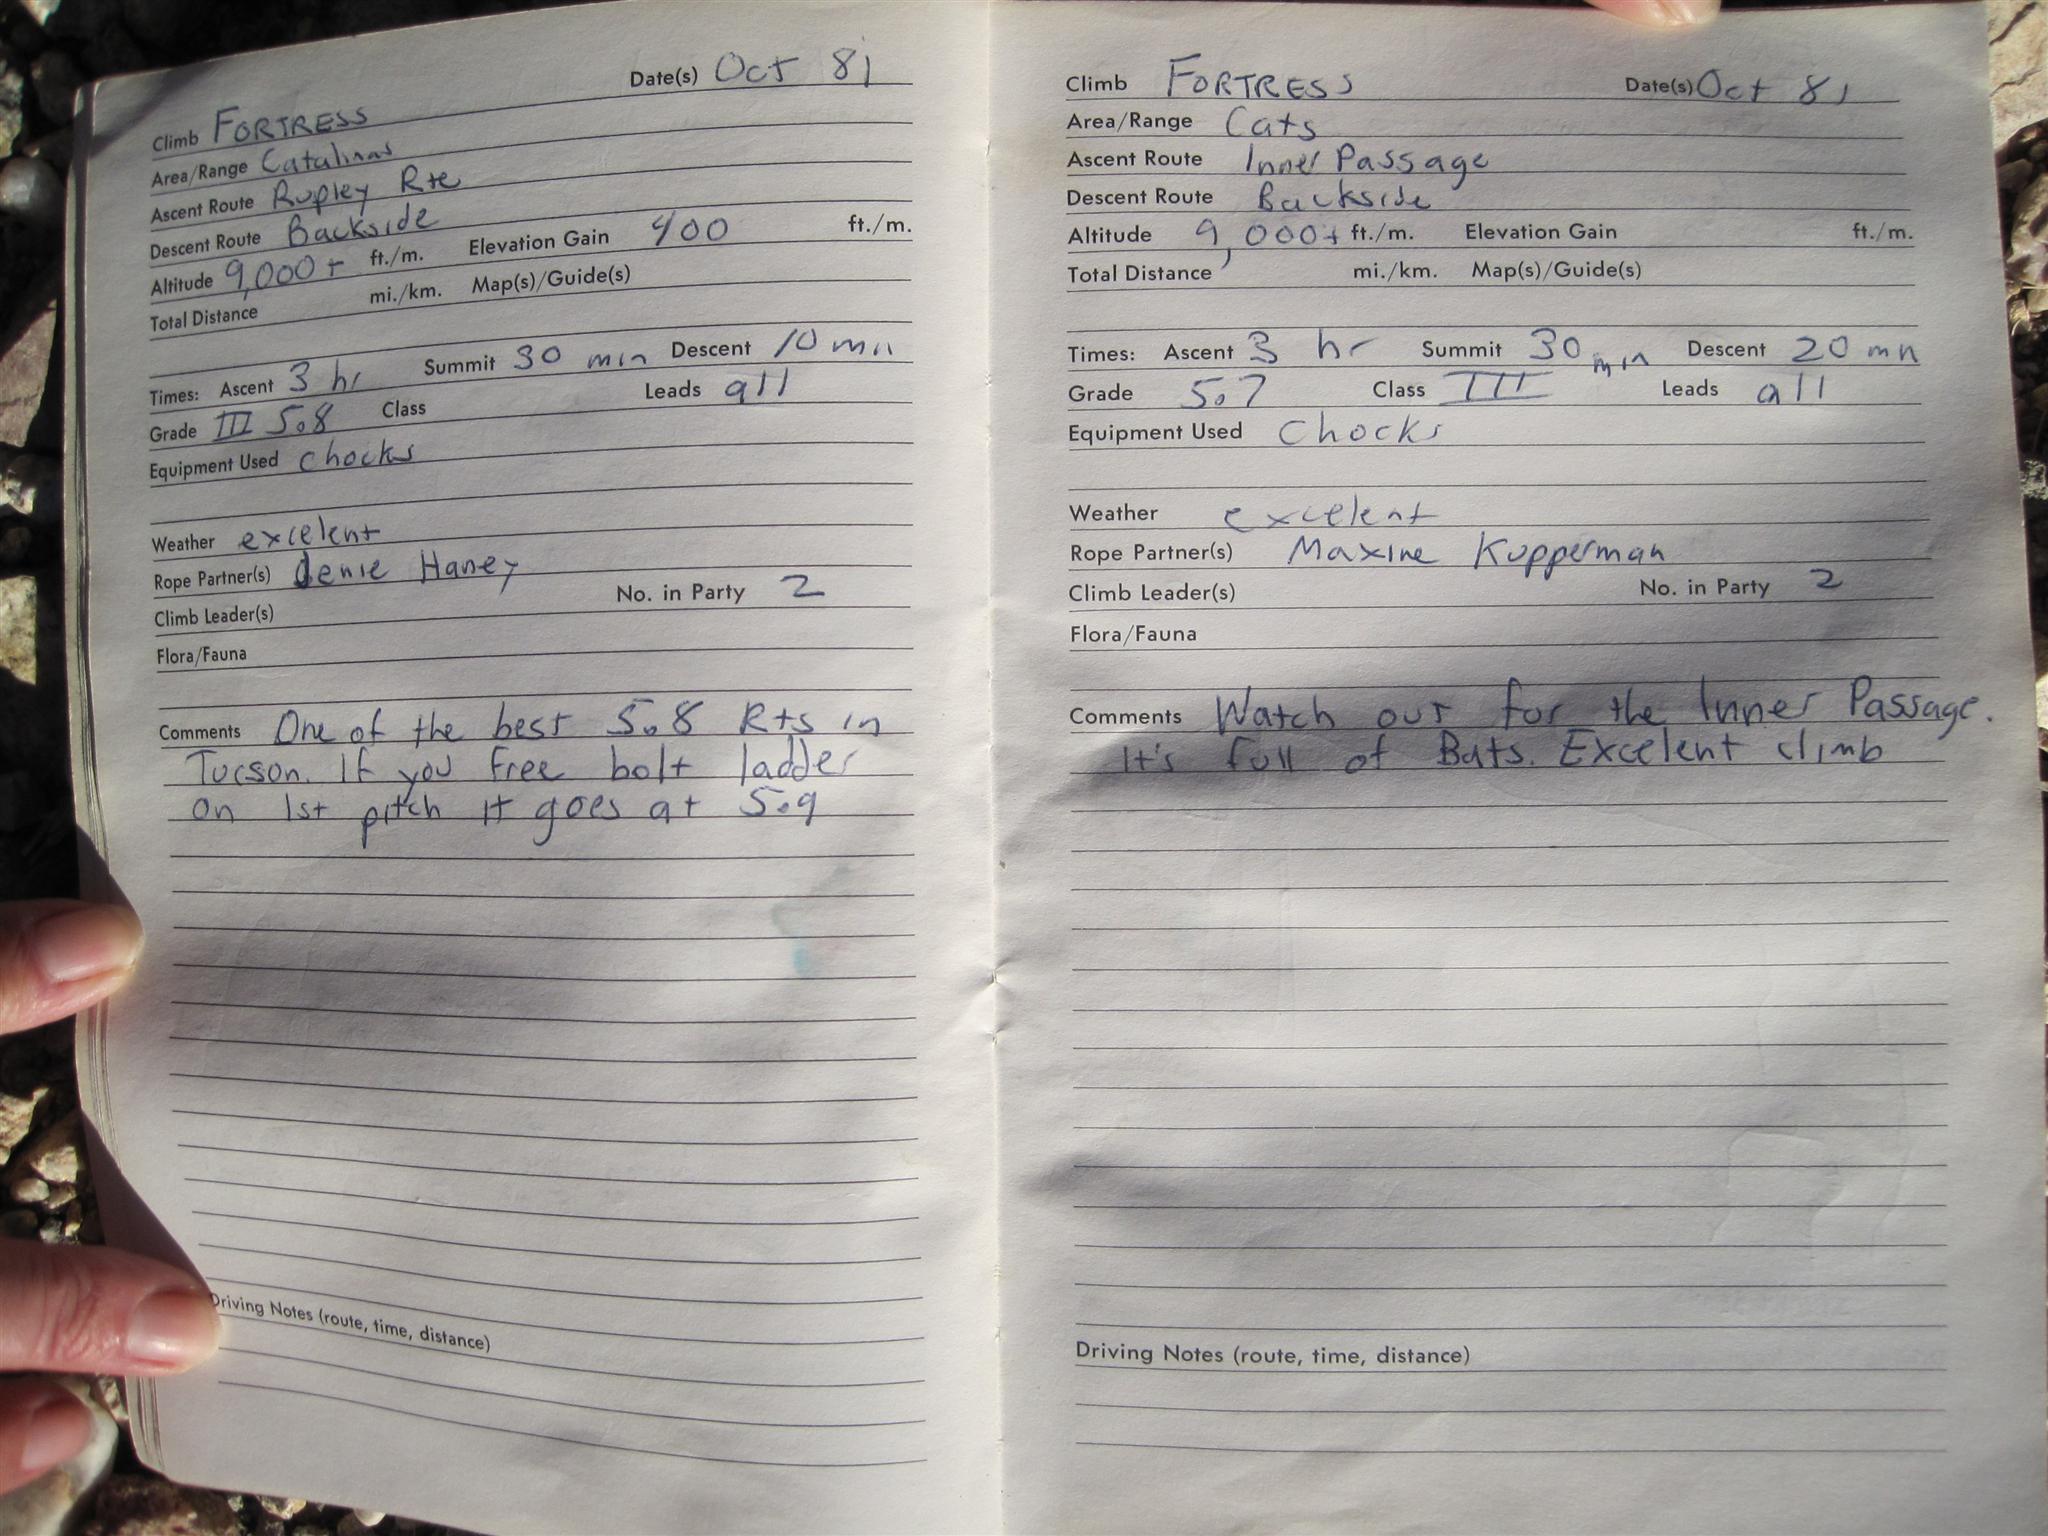 Date(s) Oct 81
Climb FORTRESS
Area/Range Catalinas
Ascent Route Rupley Rte
Descent Route Backside
Altitude 9,000+ ft./m. Elevation Gain 400 ft./m.
Total Distance mi./km. Map(s)/Guide(s)
Times: Ascent 3 hr Summit 30 min Descent 10 min
Grade III 5.8 Class Leads all
Equipment Used chocks
Weather excelent
Rope Partner(s) Haney
Climb Leader(s) No. in Party 2
Flora/Fauna
Comments One of the best 5.8 Rts in
Tucson. If you free bolt ladder
on 1st pitch it goes at 5.9
Driving Notes (route, time, distance)
Climb FORTRESS Date(s) Oct 81
Area/Range Cats
Ascent Route Inner Passage
Descent Route Backside
Altitude 9,000+ ft./m. Elevation Gain ft./m.
Total Distance mi./km. Map(s)/Guide(s)
Times: Ascent 3 hr Summit 30 min Descent 20 mn
Grade 5.7 Class III Leads all
Equipment Used Chocks
Weather excelent
Rope Partner(s) Maxine Kupperman
Climb Leader(s) No. in Party 2
Flora/Fauna
Comments Watch out for the Inner Passage.
It's full of Bats. Excelent climb
Driving Notes (route, time, distance)